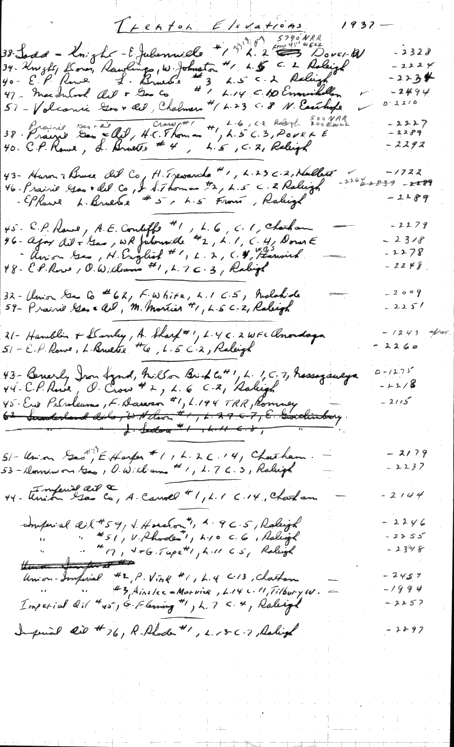 Trenton Elevations 1937-
38- Todd - Knight - E. Julienville #1, L. 2 C 3 Dover W -2328
39- Knight, Rawlings, W. Johnston #1, L. 5 C. 2 Raleigh -2224
40- E.P. Rowe L. Bruette #3 L.5 C.2 Raleigh -2234
47- MacIntosh Oil & Gas Co #1, L.14 C.10 Enniskillen -2494
57- Volcanic Gas & Oil, Chalmers #1, L.23 C.8 N. Easthope 0-2210
Prairie Gas & Oil Crow #1 L.6, C.2 Raleigh -2227
38. Prairie Gas & Oil, H.C. Thomas #1, L.5 C.3, Dover E -2289
40. C.P. Rowe, L. Bruette #4, L.5, C.2, Raleigh -2292
43- Huron & Bruce Oil Co, H. #1, L.23 C.2, Hullett -1722
46- Prairie Gas & Oil Co, Thomas #2, L.5 C.2 Raleigh
- EP Rowe L. Bruette #5, L.5 Front, Raleigh -2289
45- C.P. Rowe, A.E. #1, L.6, C.1, Chatham -2279
46- Ajax Oil & Gas, WR Julienville #2, L.1, C.4, Dover E -2318
- Union Gas, H. English #1, L.2, C.4, Harwich -2278
48- C.P. Rowe, O. Williams #1, L.7 C.3, Raleigh -2248
32- Union Gas Co #62, F. White, L.1 C.5, Malahide -2009
59- Prairie Gas & Oil, M. Mortier #1, L.5 C.2, Raleigh -2251
21- Hamblin & Stanley, A. Sharp #1, L.4 C.2 WFL Onondaga -1243
51- C.P. Rowe, L. Bruette #6, L.5 C.2, Raleigh -2260
43- Beverly Iron Synd, Milton Brick Co #1, L.1, C.7, Nassagaweya 0-1275
44- C.P. Rowe, O. Crow #2, L.6 C.2, Raleigh -2218
45- Erie Petroleums, F. Dawson #1, L.194 TRR, Romney -2115
51- Union Gas, E. Harper #1, L.2 C.14, Chatham -2179
53- Dominion Gas, O. Williams #1, L.7 C.3, Raleigh -2237
Imperial Oil &
44- Union Gas Co, A. Carroll #1, L.1 C.14, Chatham -2144
Imperial Oil #54, J. Houston #1, L.9 C.5, Raleigh -2246
" " #51, V. Rhodes #1, L.10 C.6, Raleigh -2255
" " #17, J & G. Tape #1, L.11 C.5, Raleigh -2348
Union-Imperial #2, P. Vink #1, L.4 C.13, Chatham -2457
" " #3, Ainslee - Marvin, L.14 C.11, Tilbury W. -1994
Imperial Oil #45, G. Fleming #1, L.7 C.4, Raleigh -2257
Imperial Oil #76, R. Rhodes #1, L.13 C.7, Raleigh -2297